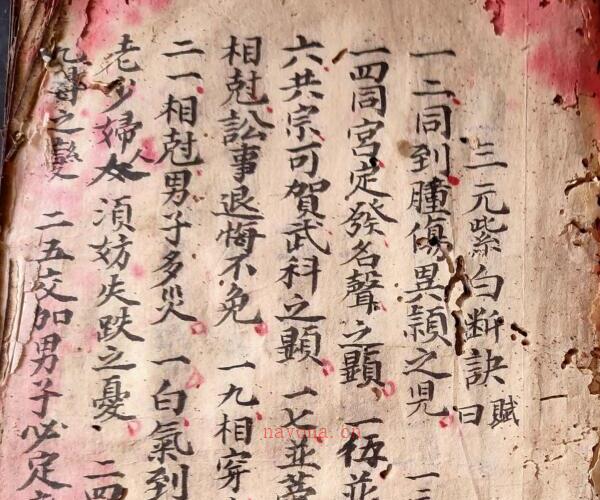 三元紫白断訣 賦曰
一二同到腫傷異穎之児
一四同宮定發名聲之顯 一伍並
六共宗可賀武科之顕 一七並
相尅訟事退悔不免 一九相穿
二一相尅男子多災 一白氣到
老少婦人須妨失跌之憂 二四
之變 二五交加男子必定
nayona.cn